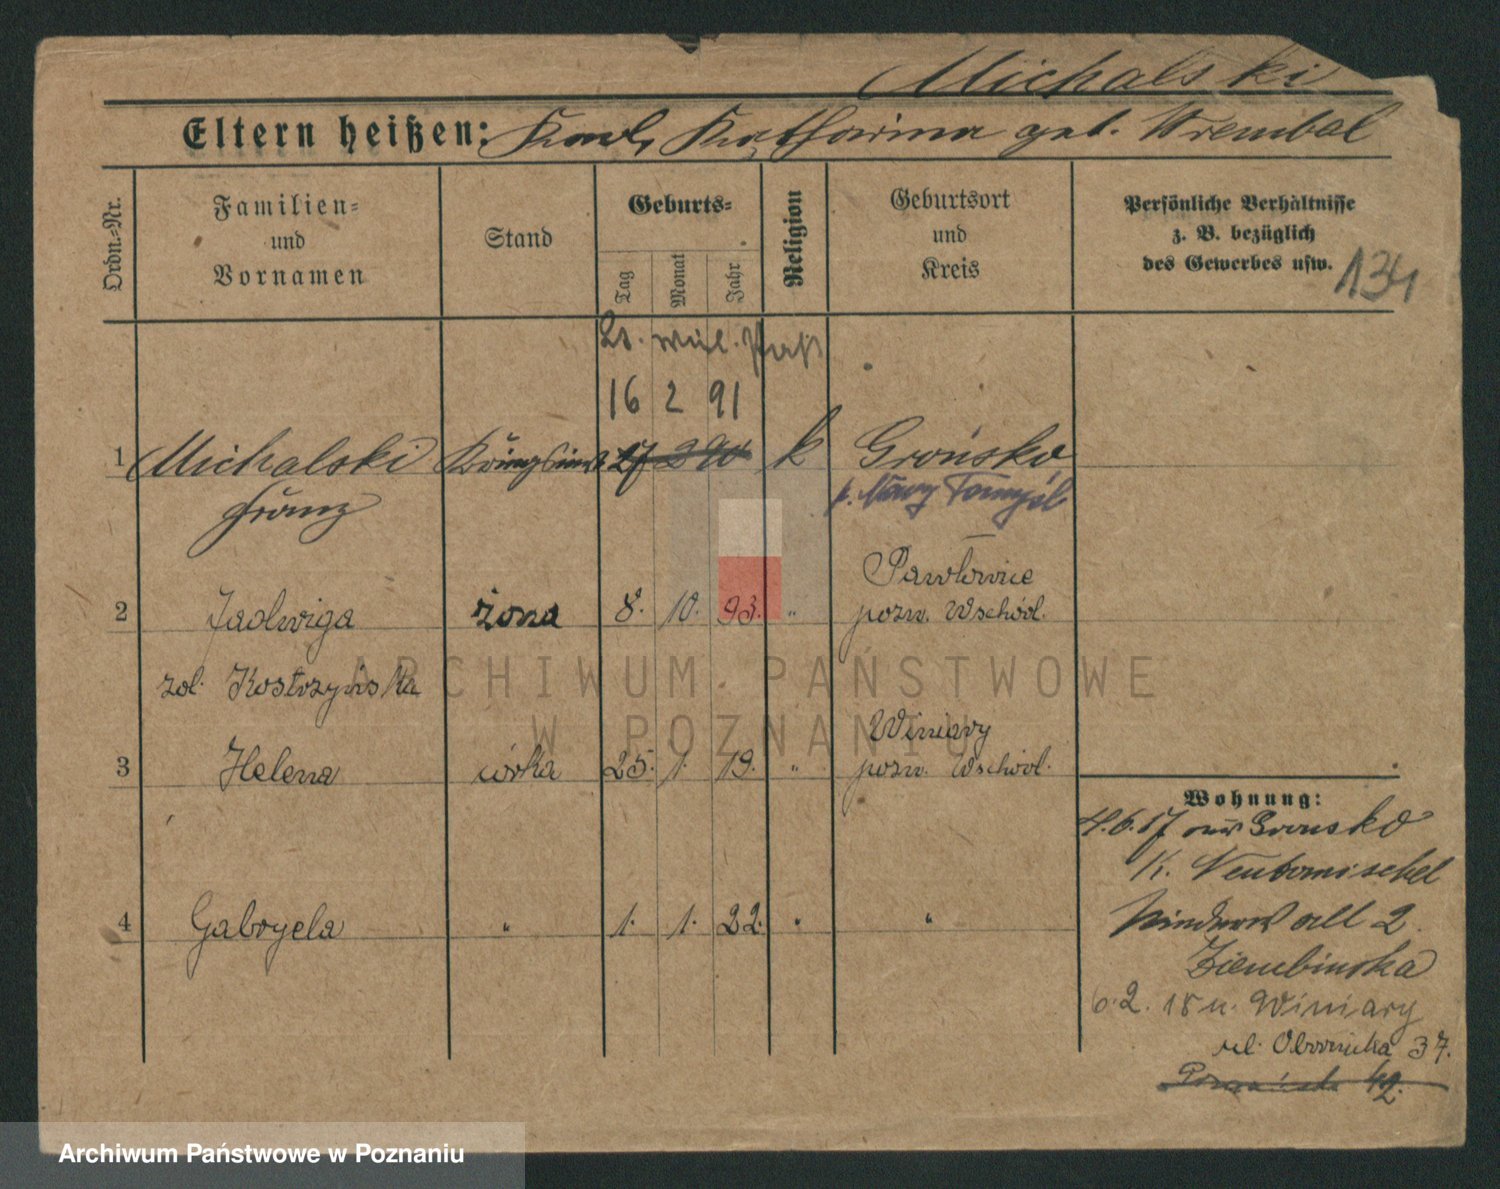 Michalski
Eltern heißen: Karl, Katharina geb. Wrembal
Ordn.-Nr.
Familien-
und
Vornamen
Stand
Geburts-
Tag
Monat
Jahr
Religion
Geburtsort
und
Kreis
Persönliche Verhältnisse
z. B. bezüglich
des Gewerbes usw.
134
Lt. mil. Paß
16 2 91
1 Michalski 27 2 90 k Grońsko
Franz p. Nowy Tomyśl
Pawłowice
2 Jadwiga żona 8. 10. 93. " pozn. Wschód.
zd. Kostrzyńska
Winiary
3 Helena córka 25. 1. 19. " pozn. Wschód.
Wohnung:
4.6.17 aus Gronsko
K. Neutomischel
4 Gabryela " 1. 1. 22. " "
wall 2.
Ziembinska
6.2.18 n. Winiary
ul. Obornicka 37.
42.
ARCHIWUM PAŃSTWOWE
W POZNANIU
Archiwum Państwowe w Poznaniu